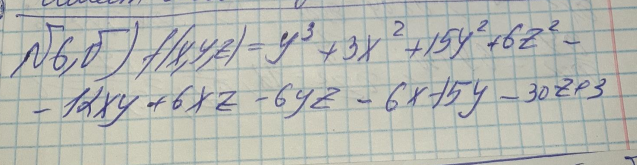 №6,б) f(x,y,z)=y³+3x²+15y²+6z²-
-12xy+6xz-6yz-6x-15y-30z+3